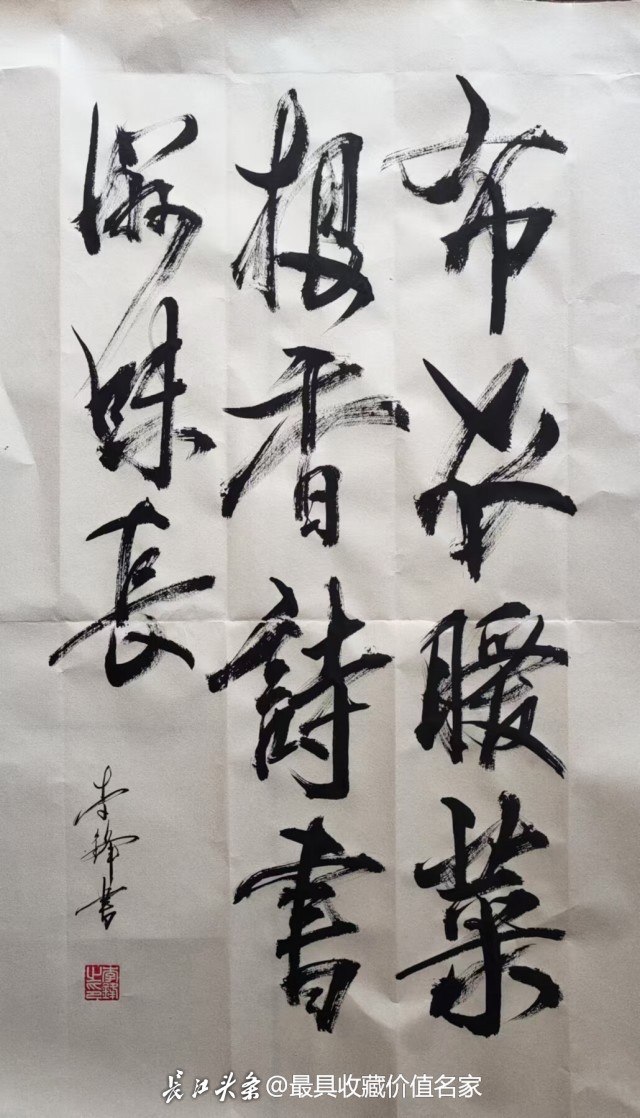 布衣暖菜
根香詩書
滋味長
李鋒書
长江头条@最具收藏价值名家